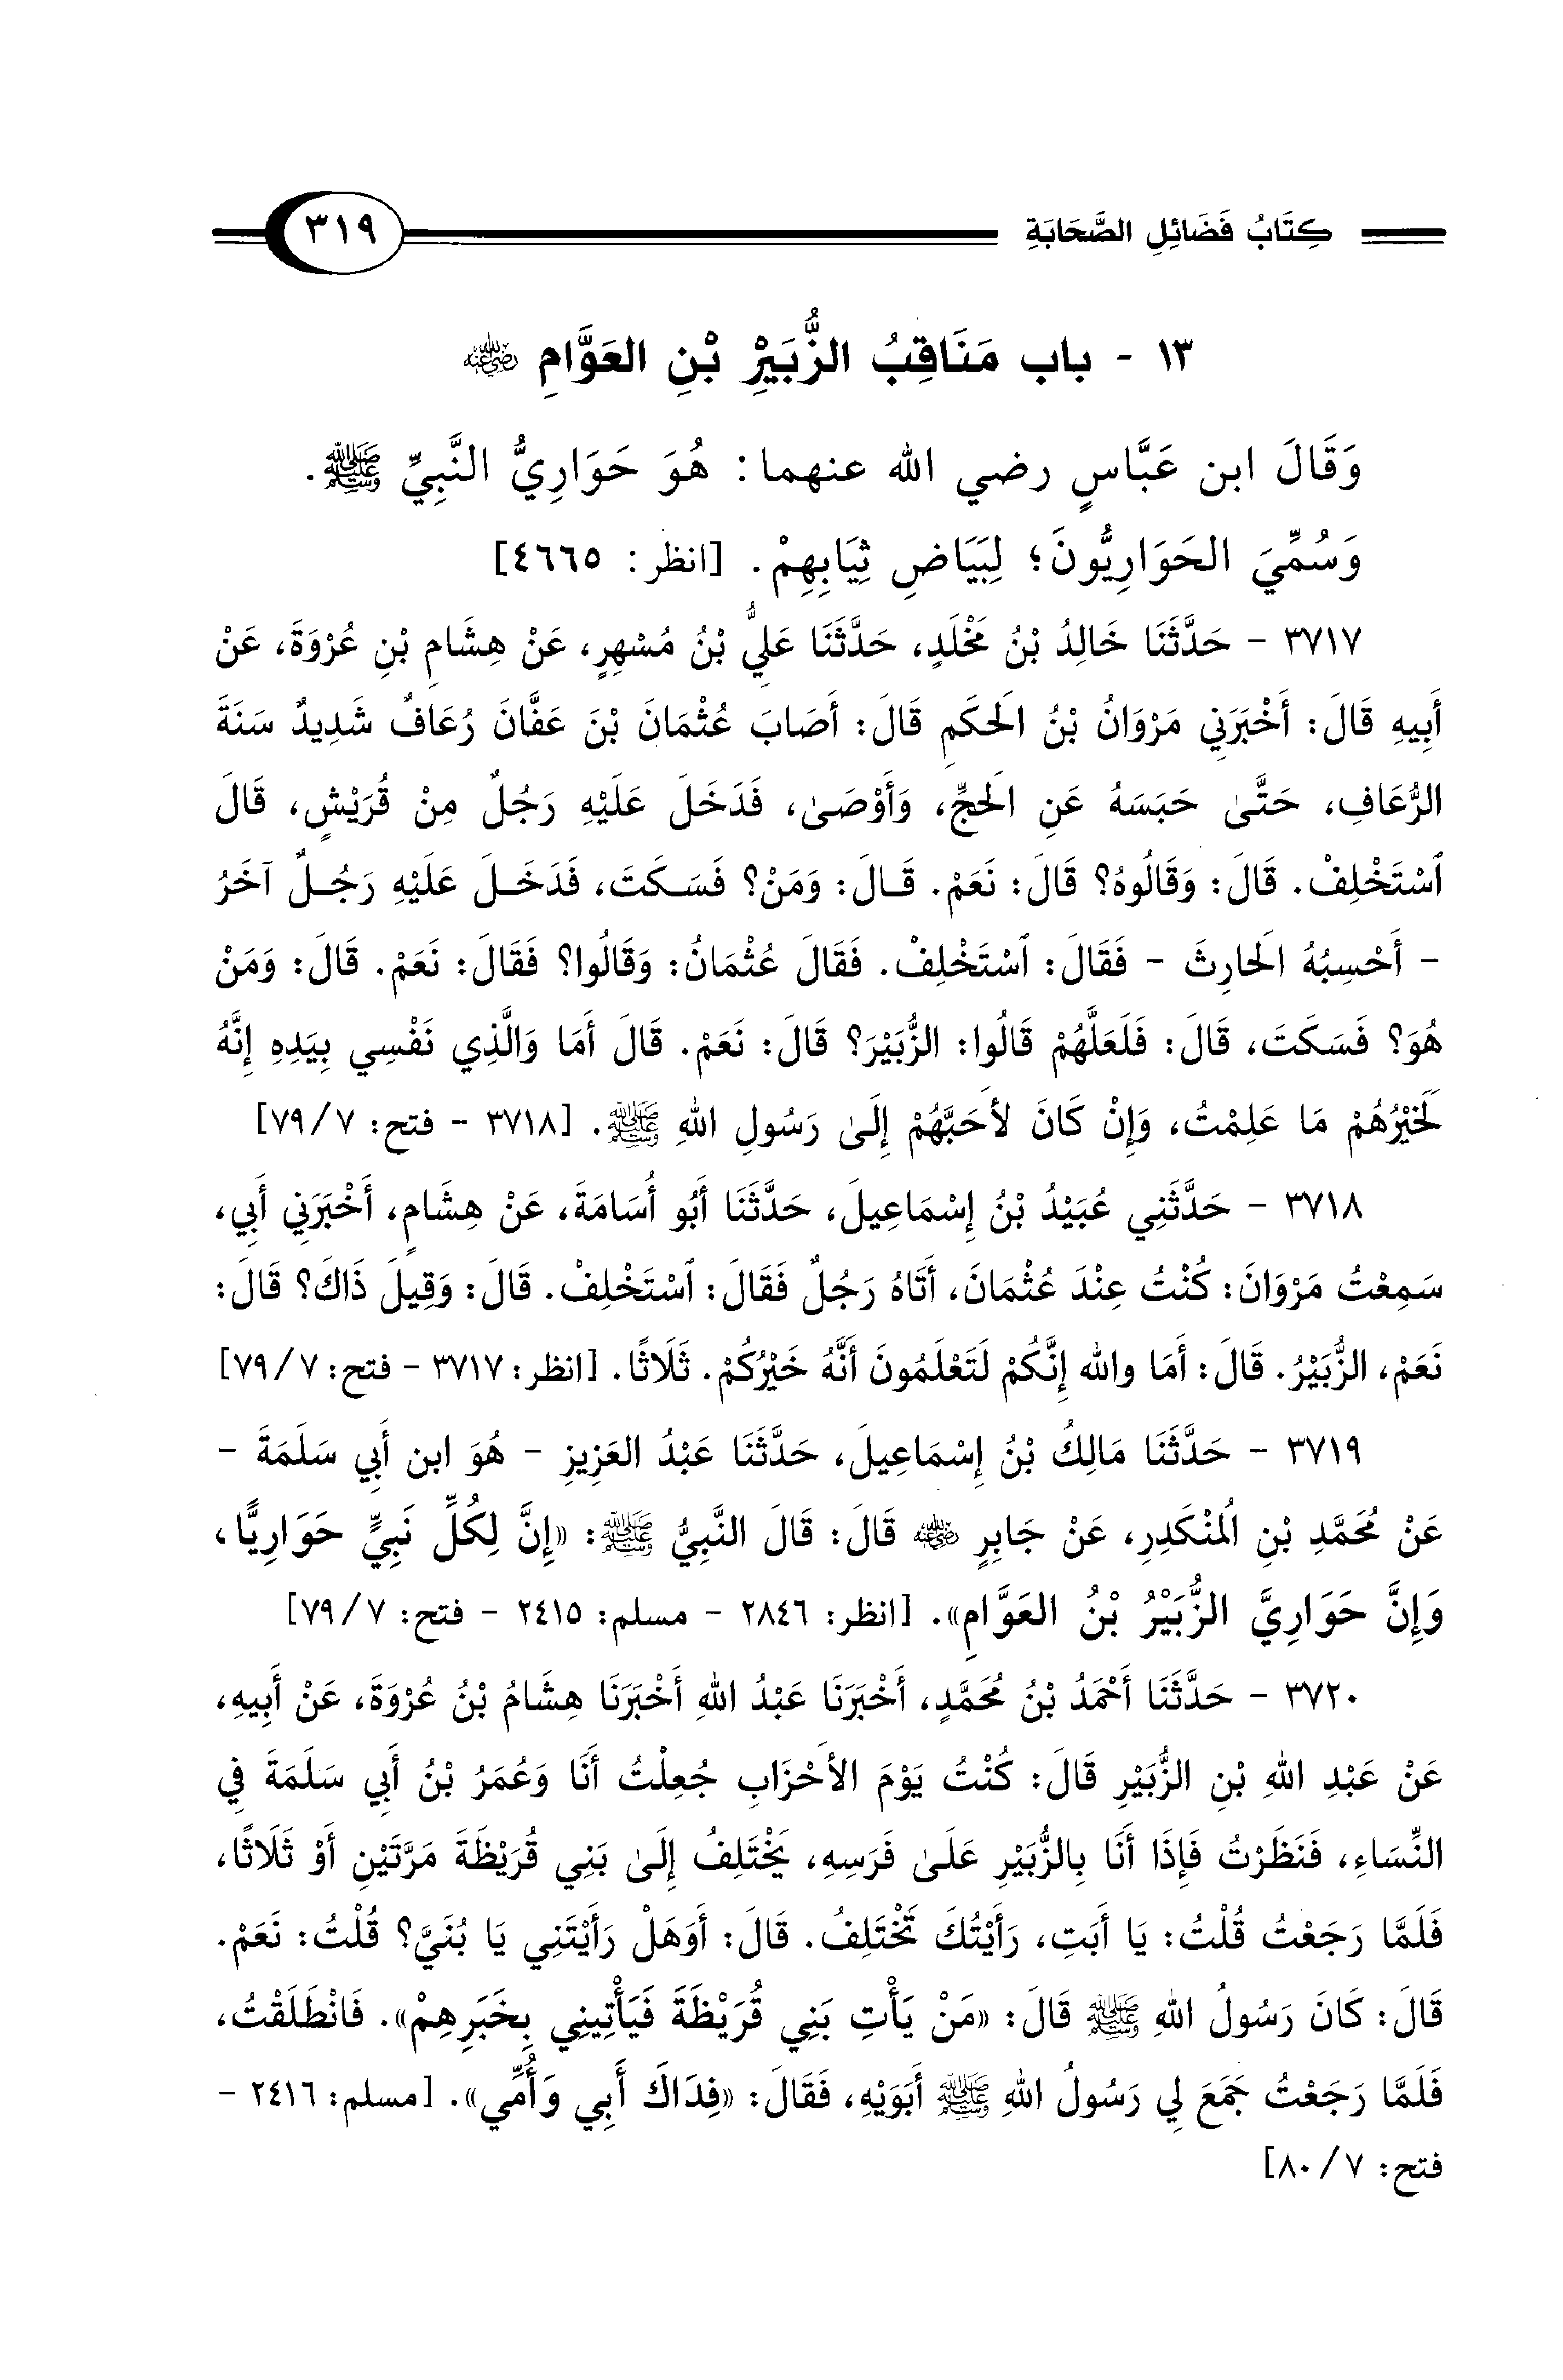 كِتَابُ فَضَائِلِ الصَّحَابَةِ ٣١٩
١٣ - باب مَنَاقِبُ الزُّبَيْرِ بْنِ العَوَّامِ رضي الله عنه
وَقَالَ ابن عَبَّاسٍ رضي الله عنهما: هُوَ حَوَارِيُّ النَّبِيِّ ﷺ.
وَسُمِّيَ الحَوَارِيُّونَ؛ لِبَيَاضِ ثِيَابِهِمْ. [انظر: ٤٦٦٥]
٣٧١٧ - حَدَّثَنَا خَالِدُ بْنُ مَخْلَدٍ، حَدَّثَنَا عَلِيُّ بْنُ مُسْهِرٍ، عَنْ هِشَامِ بْنِ عُرْوَةَ، عَنْ
أَبِيهِ قَالَ: أَخْبَرَنِي مَرْوَانُ بْنُ الَحكَمِ قَالَ: أَصَابَ عُثْمَانَ بْنَ عَفَّانَ رُعَافٌ شَدِيدٌ سَنَةَ
الرُّعَافِ، حَتَّىٰ حَبَسَهُ عَنِ الَحجِّ، وَأَوْصَىٰ، فَدَخَلَ عَلَيْهِ رَجُلٌ مِنْ قُرَيْشٍ، قَالَ
ٱسْتَخْلِفْ. قَالَ: وَقَالُوهُ؟ قَالَ: نَعَمْ. قَالَ: وَمَنْ؟ فَسَكَتَ، فَدَخَلَ عَلَيْهِ رَجُلٌ آخَرُ
- أَحْسِبُهُ الَحارِثَ - فَقَالَ: ٱسْتَخْلِفْ. فَقَالَ عُثْمَانُ: وَقَالُوا؟ فَقَالَ: نَعَمْ. قَالَ: وَمَنْ
هُوَ؟ فَسَكَتَ، قَالَ: فَلَعَلَّهُمْ قَالُوا: الزُّبَيْرَ؟ قَالَ: نَعَمْ. قَالَ أَمَا وَالَّذِي نَفْسِي بِيَدِهِ إِنَّهُ
لَخَيْرُهُمْ مَا عَلِمْتُ، وَإِنْ كَانَ لأَحَبَّهُمْ إِلَىٰ رَسُولِ اللهِ ﷺ. [٣٧١٨ - فتح: ٧/ ٧٩]
٣٧١٨ - حَدَّثَنِي عُبَيْدُ بْنُ إِسْمَاعِيلَ، حَدَّثَنَا أَبُو أُسَامَةَ، عَنْ هِشَامٍ، أَخْبَرَنِي أَبِي،
سَمِعْتُ مَرْوَانَ: كُنْتُ عِنْدَ عُثْمَانَ، أَتَاهُ رَجُلٌ فَقَالَ: ٱسْتَخْلِفْ. قَالَ: وَقِيلَ ذَاكَ؟ قَالَ:
نَعَمْ، الزُّبَيْرُ. قَالَ: أَمَا والله إِنَّكُمْ لَتَعْلَمُونَ أَنَّهُ خَيْرُكُمْ. ثَلَاثًا. [انظر: ٣٧١٧ - فتح: ٧/ ٧٩]
٣٧١٩ - حَدَّثَنَا مَالِكُ بْنُ إِسْمَاعِيلَ، حَدَّثَنَا عَبْدُ العَزِيزِ - هُوَ ابن أَبِي سَلَمَةَ -
عَنْ مُحَمَّدِ بْنِ الُمنْكَدِرِ، عَنْ جَابِرٍ رضي الله عنه قَالَ: قَالَ النَّبِيُّ ﷺ: «إِنَّ لِكُلِّ نَبِيٍّ حَوَارِيًّا،
وَإِنَّ حَوَارِيَّ الزُّبَيْرُ بْنُ العَوَّامِ». [انظر: ٢٨٤٦ - مسلم: ٢٤١٥ - فتح: ٧/ ٧٩]
٣٧٢٠ - حَدَّثَنَا أَحْمَدُ بْنُ مُحَمَّدٍ، أَخْبَرَنَا عَبْدُ اللهِ أَخْبَرَنَا هِشَامُ بْنُ عُرْوَةَ، عَنْ أَبِيهِ،
عَنْ عَبْدِ اللهِ بْنِ الزُّبَيْرِ قَالَ: كُنْتُ يَوْمَ الأَحْزَابِ جُعِلْتُ أَنَا وَعُمَرُ بْنُ أَبِي سَلَمَةَ فِي
النِّسَاءِ، فَنَظَرْتُ فَإِذَا أَنَا بِالزُّبَيْرِ عَلَىٰ فَرَسِهِ، يَخْتَلِفُ إِلَىٰ بَنِي قُرَيْظَةَ مَرَّتَيْنِ أَوْ ثَلَاثًا،
فَلَمَّا رَجَعْتُ قُلْتُ: يَا أَبَتِ، رَأَيْتُكَ تَخْتَلِفُ. قَالَ: أَوَهَلْ رَأَيْتَنِي يَا بُنَيَّ؟ قُلْتُ: نَعَمْ.
قَالَ: كَانَ رَسُولُ اللهِ ﷺ قَالَ: «مَنْ يَأْتِ بَنِي قُرَيْظَةَ فَيَأْتِينِي بِخَبَرِهِمْ». فَانْطَلَقْتُ،
فَلَمَّا رَجَعْتُ جَمَعَ لِي رَسُولُ اللهِ ﷺ أَبَوَيْهِ، فَقَالَ: «فِدَاكَ أَبِي وَأُمِّي». [مسلم: ٢٤١٦ -
فتح: ٧/ ٨٠]